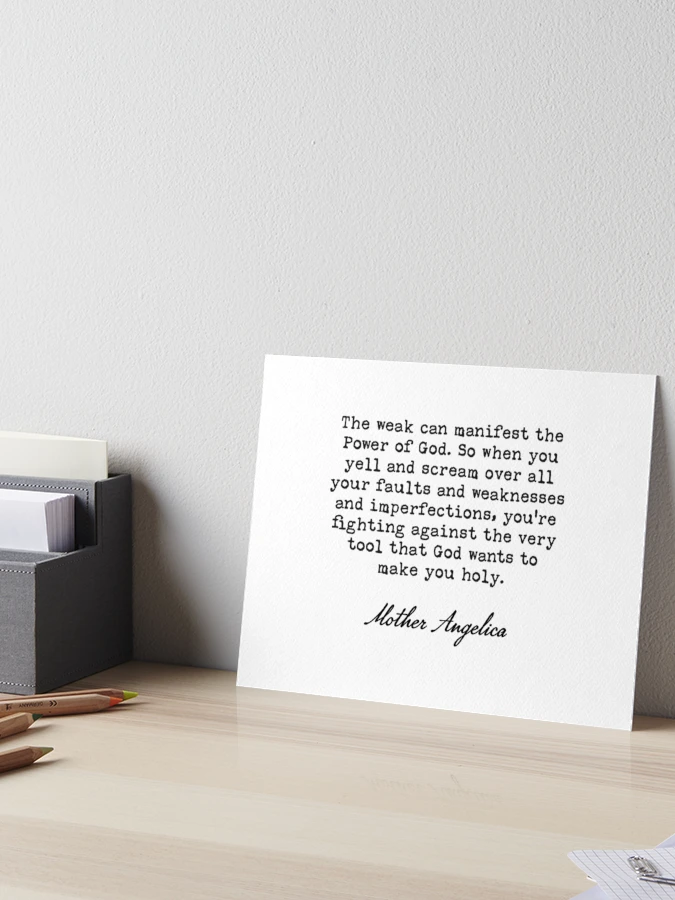 The weak can manifest the
Power of God. So when you
yell and scream over all
your faults and weaknesses
and imperfections, you're
fighting against the very
tool that God wants to
make you holy.
Mother Angelica